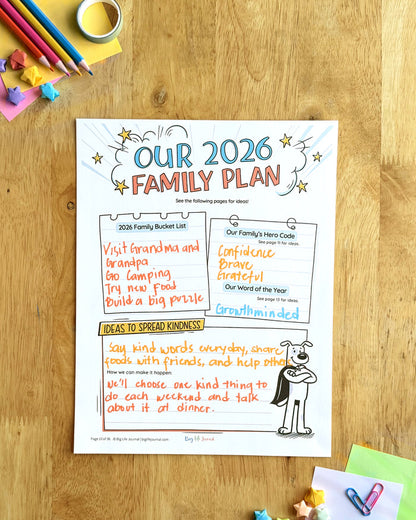 OUR 2026
FAMILY PLAN
See the following pages for ideas!
2026 Family Bucket List
Visit Grandma and
Grandpa
Go Camping
Try new Food
Build a big puzzle
Our Family's Hero Code
See page 11 for ideas.
Confidence
Brave
Grateful
Our Word of the Year
See page 13 for ideas.
Growthminded
IDEAS TO SPREAD KINDNESS
Say kind words everyday, share
foods with friends, and help others
How can we make it happen:
We'll choose one kind thing to
do each weekend and talk
about it at dinner.
Big Life Journal